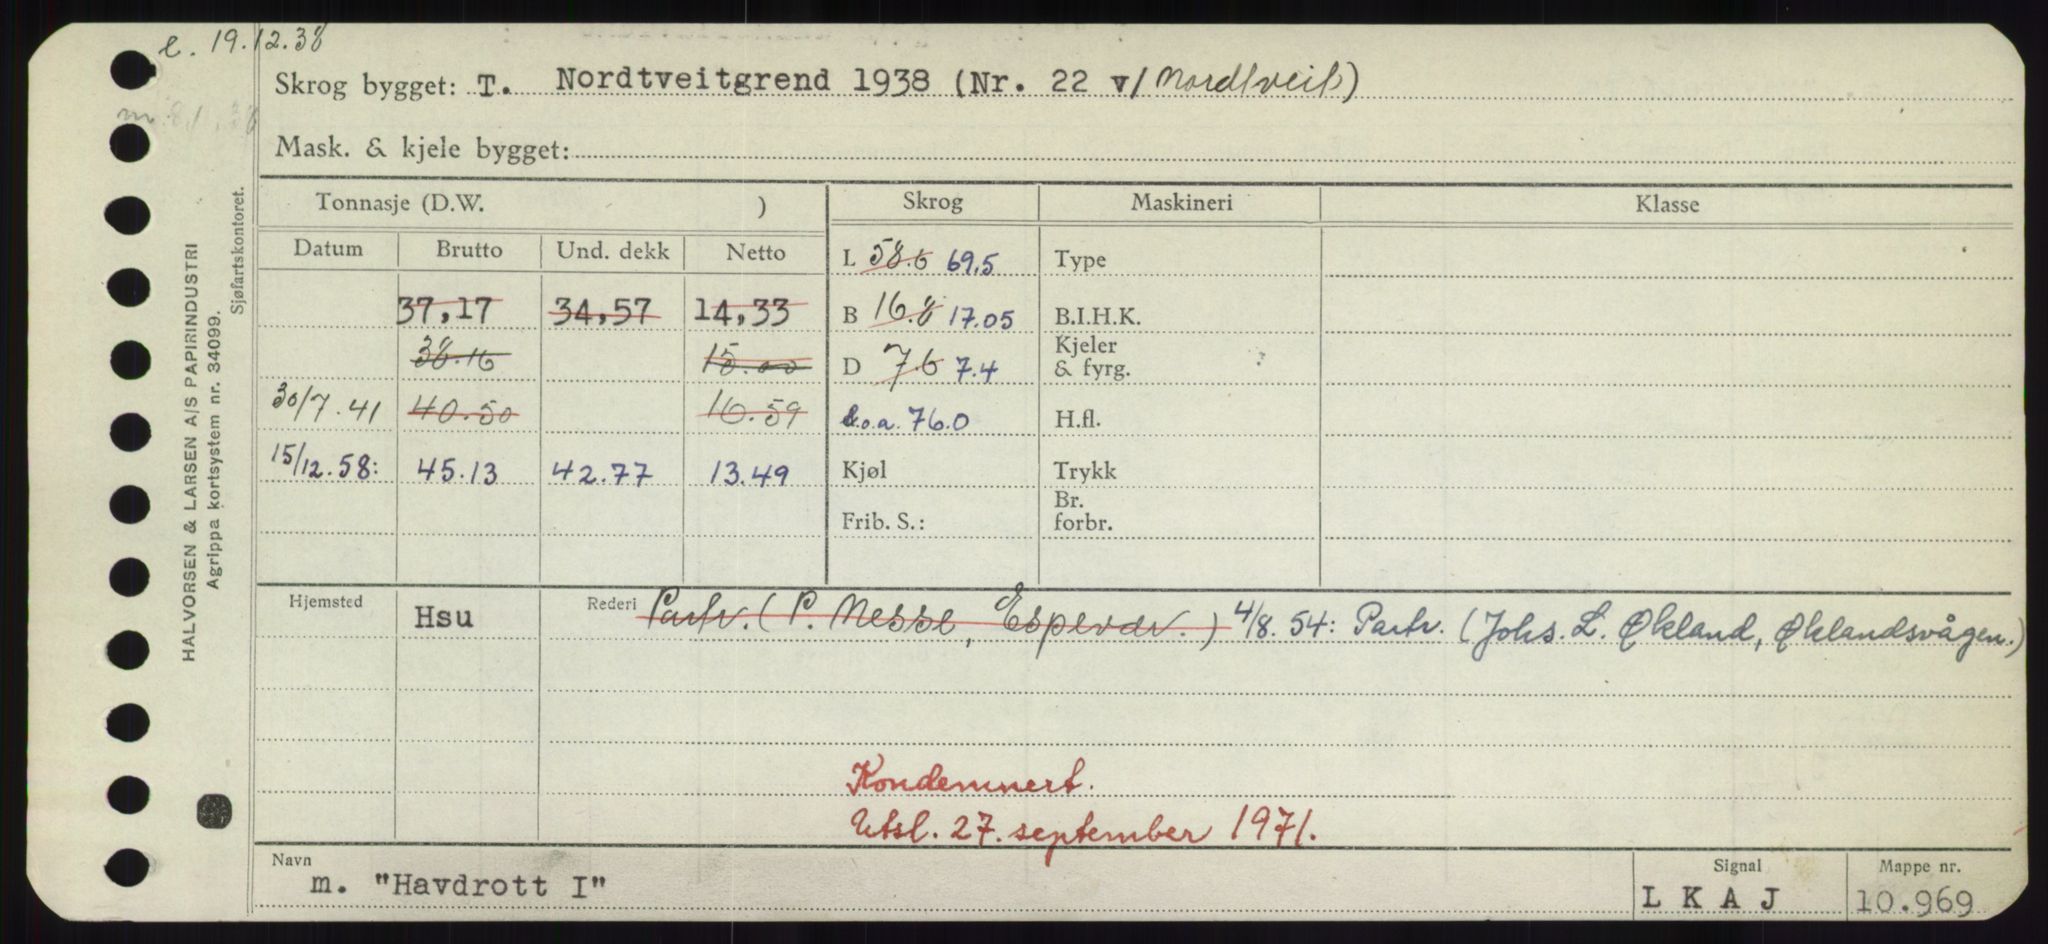 e. 19.12.38
Skrog bygget: T. Nordtveitgrend 1938 (Nr. 22 v/ Nordtveit)
Mask. & kjele bygget:
HALVORSEN & LARSEN A/S PAPIRINDUSTRI
Agrippa kortsystem nr. 34099.
Sjøfartskontoret.
Tonnasje (D.W. )
Skrog Maskineri Klasse
Datum Brutto Und. dekk Netto
L 58.6 69.5 Type
37,17 34,57 14,33 B 16.8 17.05 B.I.H.K.
38.16 15.00 D 7.6 7.4 Kjeler & fyrg.
30/7.41 40.50 16.59 L.o.a. 76.0 H.fl.
15/12.58: 45.13 42.77 13.49 Kjøl Trykk
Frib. S.: Br. forbr.
Hjemsted Hsu Rederi Partr. (P. Nesse, Espevær.) 4/8.54: Partr. (Johs. L. Økland, Øklandsvågen.)
Kondemnert.
Utsl. 27. september 1971.
Navn Signal Mappe nr.
m. "Havdrott I" L K A J 10.969